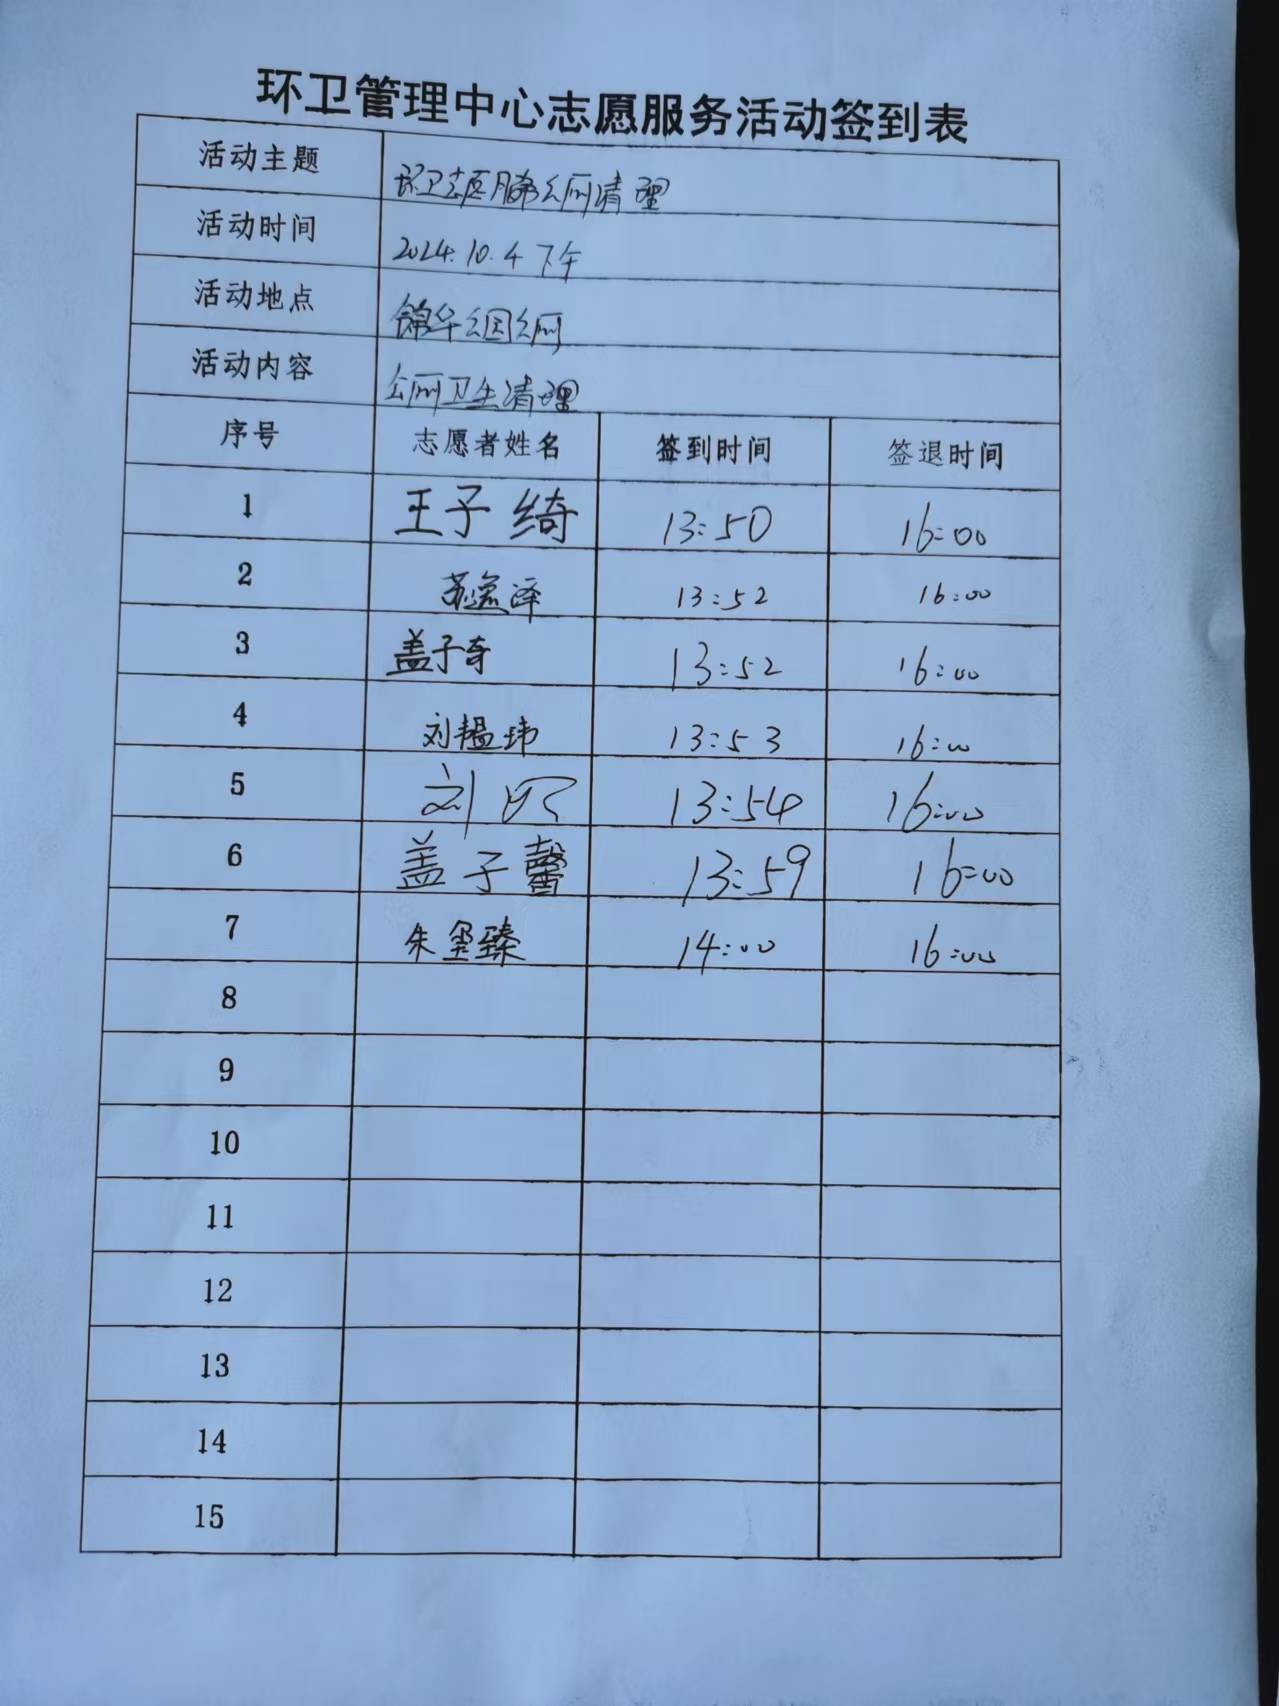 环卫管理中心志愿服务活动签到表
活动主题 环卫志愿服务公厕清理
活动时间 2024.10.4 下午
活动地点 锦华公园公厕
活动内容 公厕卫生清理
序号 志愿者姓名 签到时间 签退时间
1 王子绮 13:50 16:00
2 13:52 16:00
3 盖子奇 13:52 16:00
4 刘韫玮 13:53 16:00
5 刘 13:54 16:00
6 盖子馨 13:59 16:00
7 朱玺臻 14:00 16:00
8
9
10
11
12
13
14
15